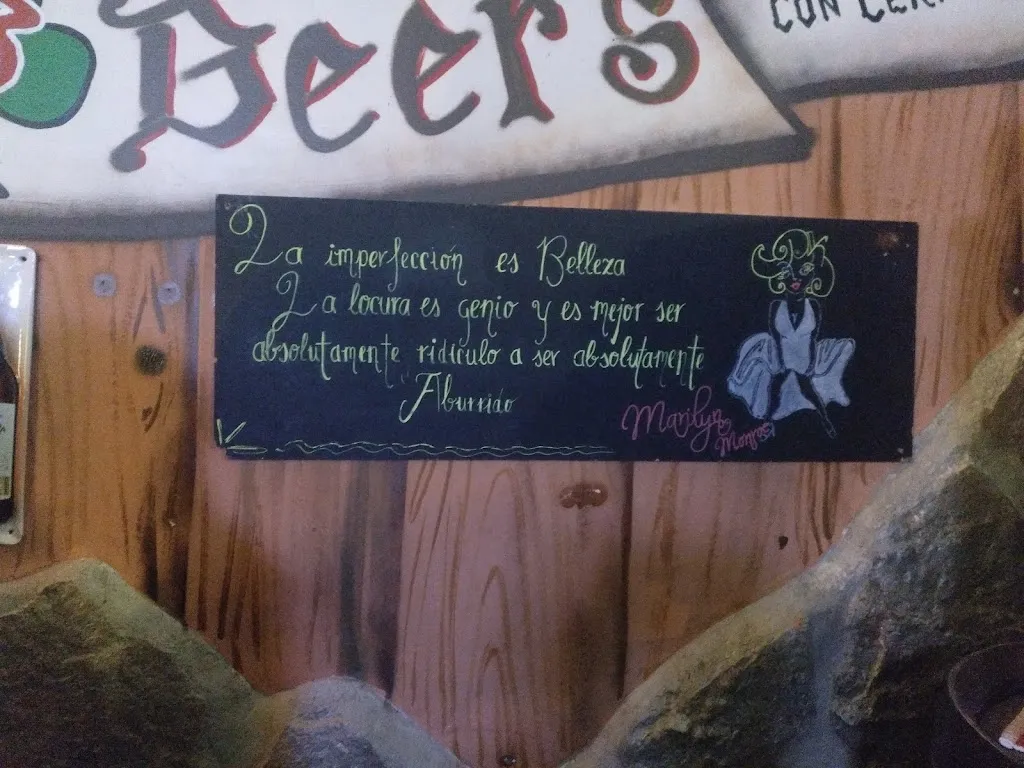 Beers
CON CER
La imperfección es Belleza
La locura es genio y es mejor ser
absolutamente ridículo a ser absolutamente
Aburrido
Marilyn
Monroe